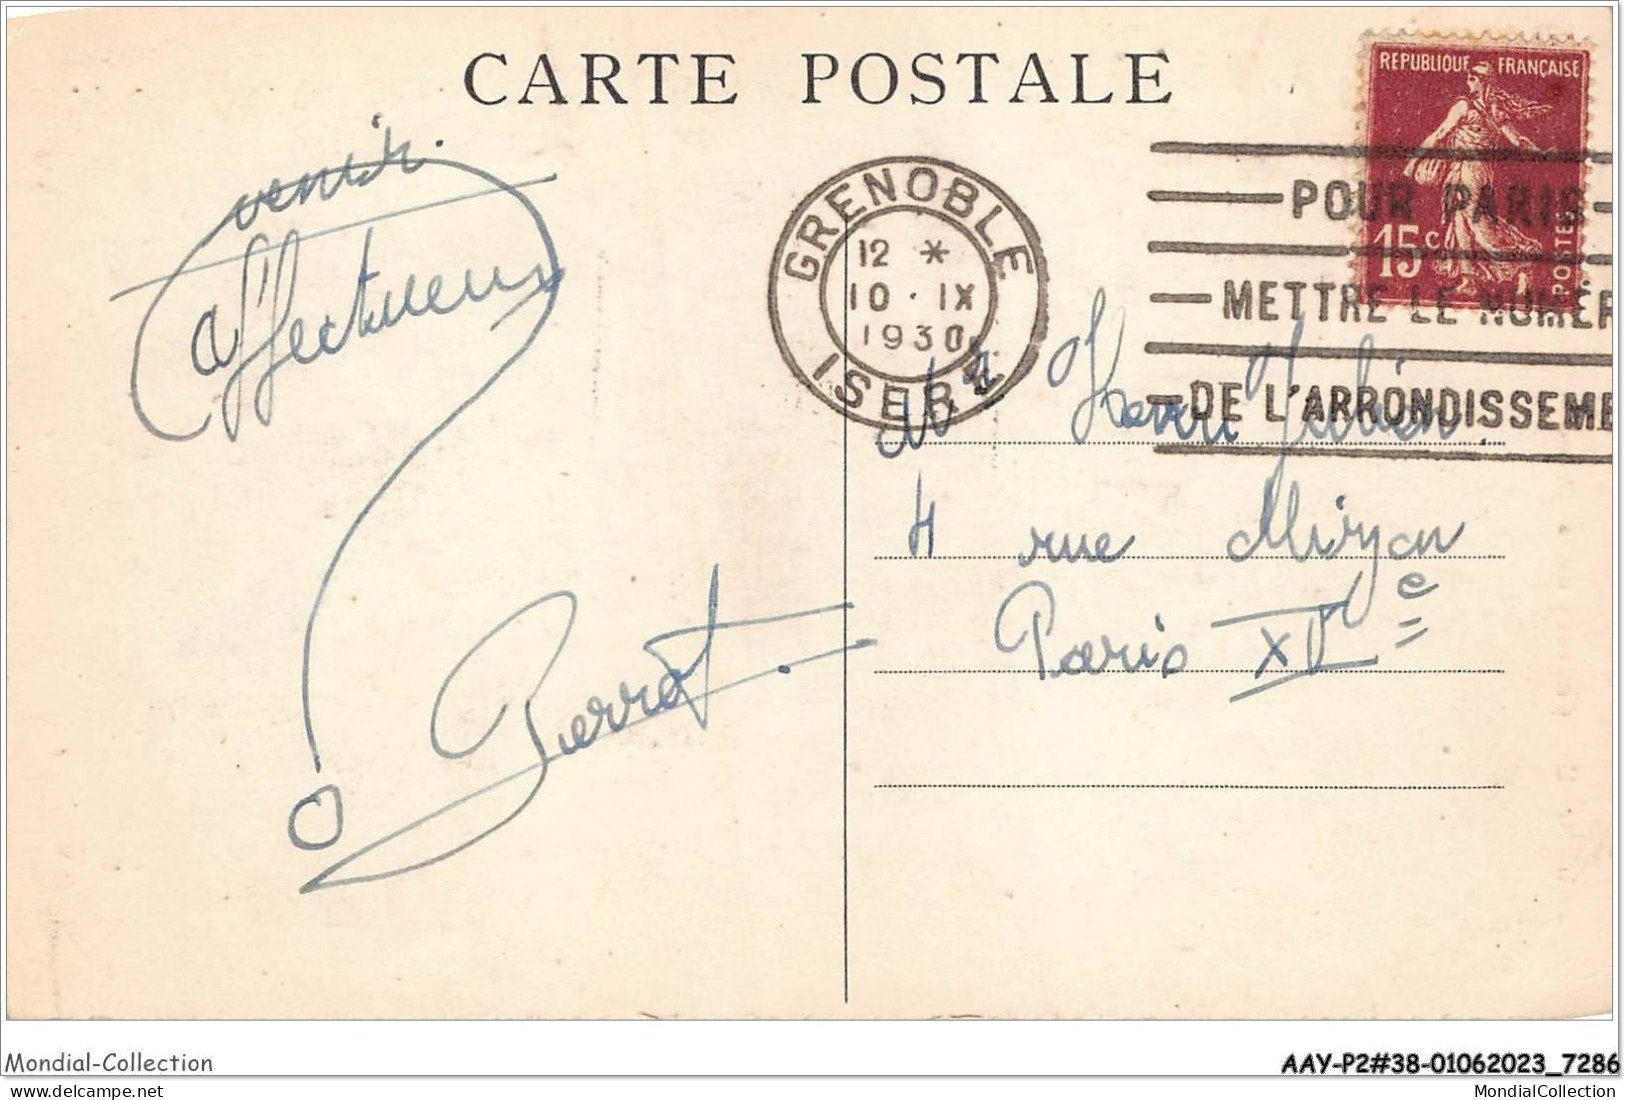 CARTE POSTALE
REPUBLIQUE FRANÇAISE
15c
POSTES
GRENOBLE
12 *
10 · IX
1930
ISERE
POUR PARIS
METTRE LE NUMER
DE L'ARRONDISSEME
venir.
affectueux
Pierrot.
Mr Henri Julien
4 rue Mizon
Paris XVe
Mondial-Collection
AAY-P2#38-01062023_7286
MondialCollection